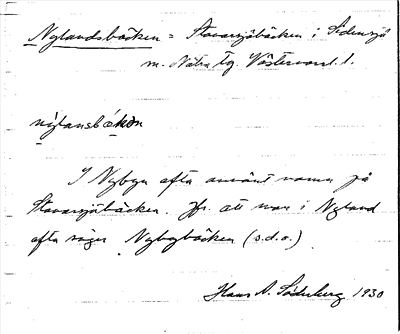 Nylandsbäcken = Stavarsjöbäcken i Sidensjö
m. Nätra tg. Västernorrl. l.
nýlansbékən
I Nybyn ofta använt namn på
Stavarsjöbäcken. Jfr. att man i Nyland
ofta säger Nybybäcken (s.d.o.)
Hans A. Söderberg 1930